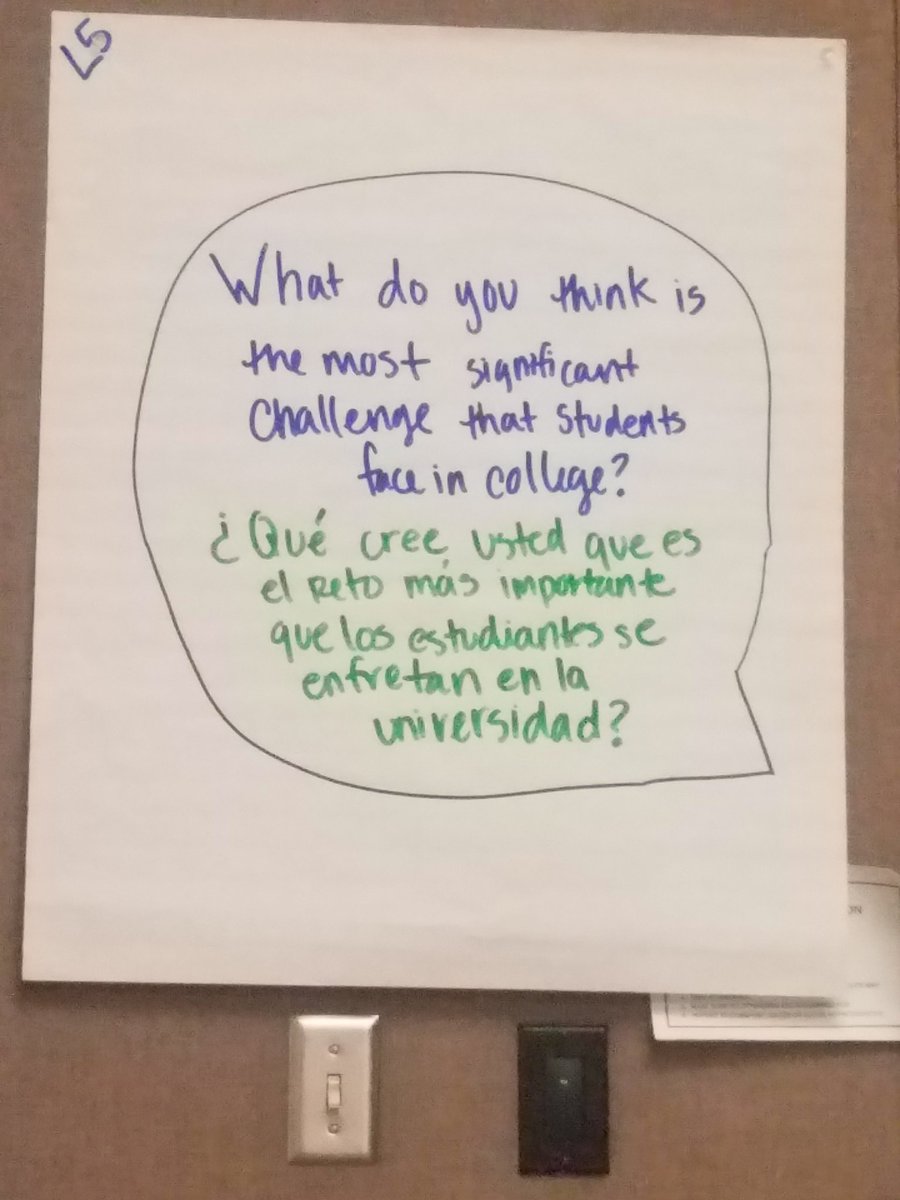 L5
What do you think is
the most significant
challenge that students
face in college?
¿Qué cree usted que es
el reto más importante
que los estudiantes se
enfretan en la
universidad?